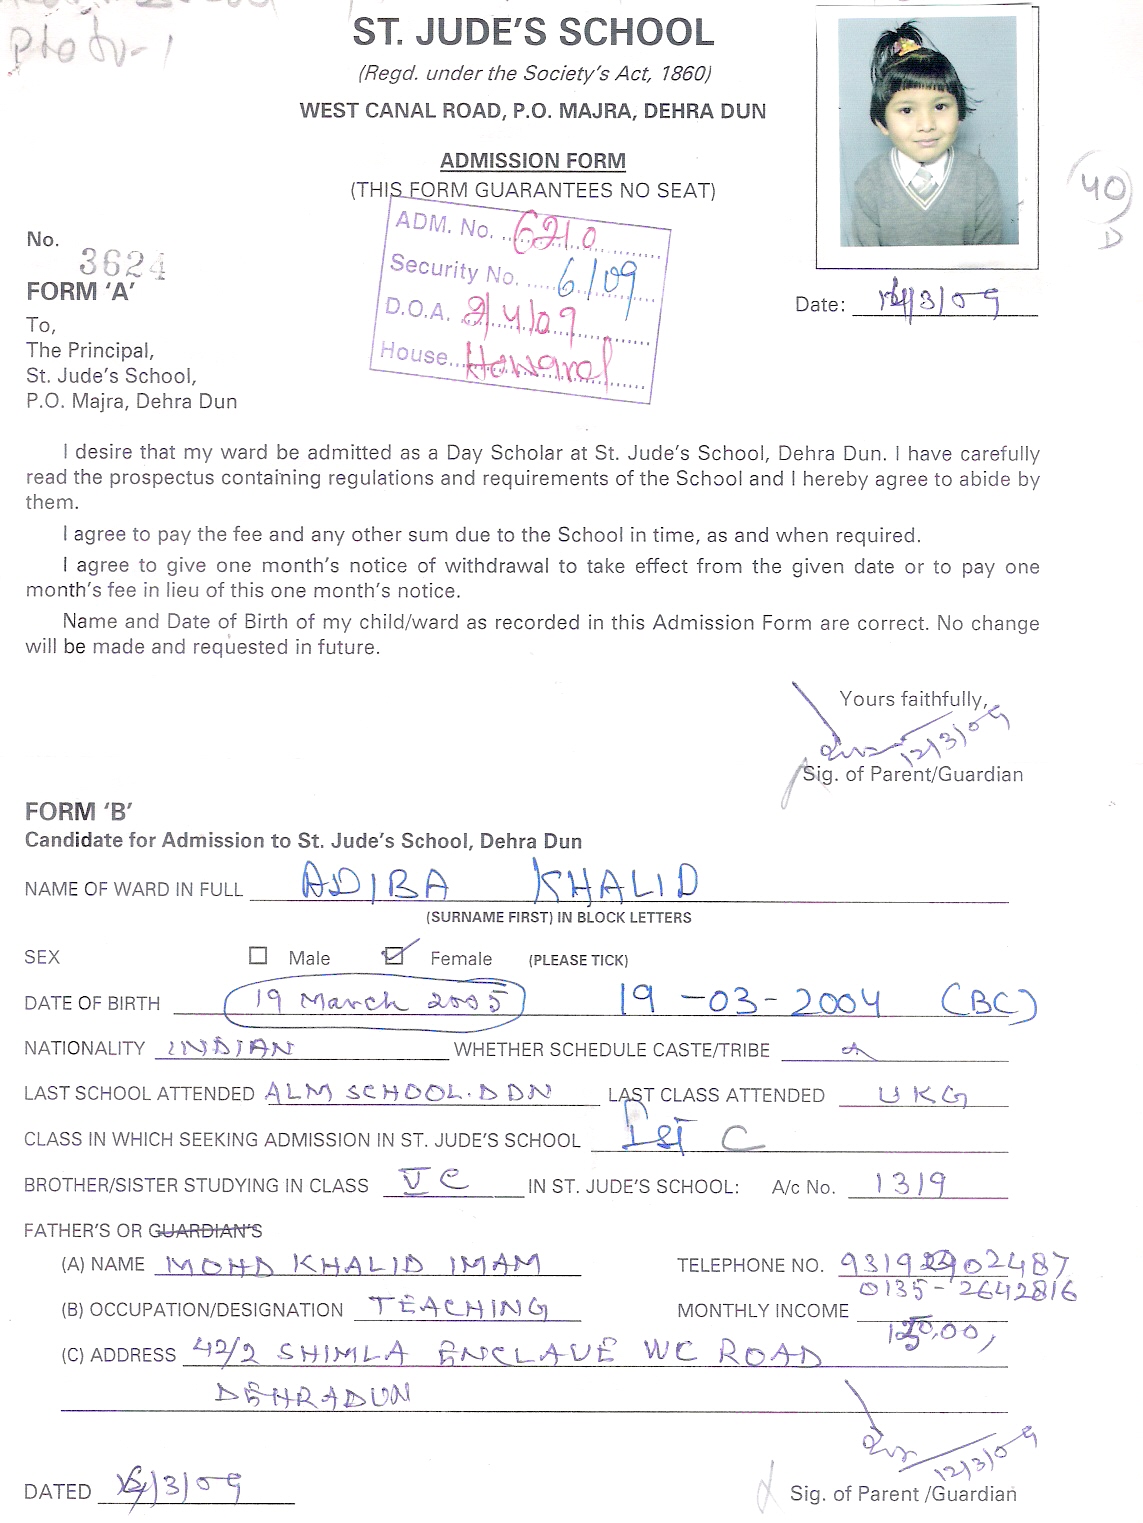 Photo-1
ST. JUDE'S SCHOOL
(Regd. under the Society's Act, 1860)
WEST CANAL ROAD, P.O. MAJRA, DEHRA DUN
ADMISSION FORM
(THIS FORM GUARANTEES NO SEAT)
40
D
ADM. No. 6210
Security No. 6/09
D.O.A. 2/4/09
House Howard
No. 3624
FORM 'A'
Date: 12/3/09
To,
The Principal,
St. Jude's School,
P.O. Majra, Dehra Dun
I desire that my ward be admitted as a Day Scholar at St. Jude's School, Dehra Dun. I have carefully
read the prospectus containing regulations and requirements of the School and I hereby agree to abide by
them.
I agree to pay the fee and any other sum due to the School in time, as and when required.
I agree to give one month's notice of withdrawal to take effect from the given date or to pay one
month's fee in lieu of this one month's notice.
Name and Date of Birth of my child/ward as recorded in this Admission Form are correct. No change
will be made and requested in future.
Yours faithfully,
12/3/09
Sig. of Parent/Guardian
FORM 'B'
Candidate for Admission to St. Jude's School, Dehra Dun
NAME OF WARD IN FULL ADIBA KHALID
(SURNAME FIRST) IN BLOCK LETTERS
SEX Male Female (PLEASE TICK)
DATE OF BIRTH 19 March 2005 19-03-2004 (BC)
NATIONALITY INDIAN WHETHER SCHEDULE CASTE/TRIBE
LAST SCHOOL ATTENDED ALM SCHOOL. DDN LAST CLASS ATTENDED UKG
CLASS IN WHICH SEEKING ADMISSION IN ST. JUDE'S SCHOOL Ist C
BROTHER/SISTER STUDYING IN CLASS V C IN ST. JUDE'S SCHOOL: A/c No. 1319
FATHER'S OR GUARDIAN'S
(A) NAME MOHD KHALID IMAM TELEPHONE NO. 9319 02487
0135-2642816
(B) OCCUPATION/DESIGNATION TEACHING MONTHLY INCOME
(C) ADDRESS 42/2 SHIMLA ENCLAVE WC ROAD
DEHRADUN
12/3/09
DATED 12/3/09 Sig. of Parent /Guardian